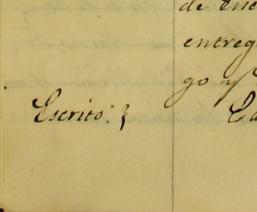 de
entreg
go y
Escrito: }